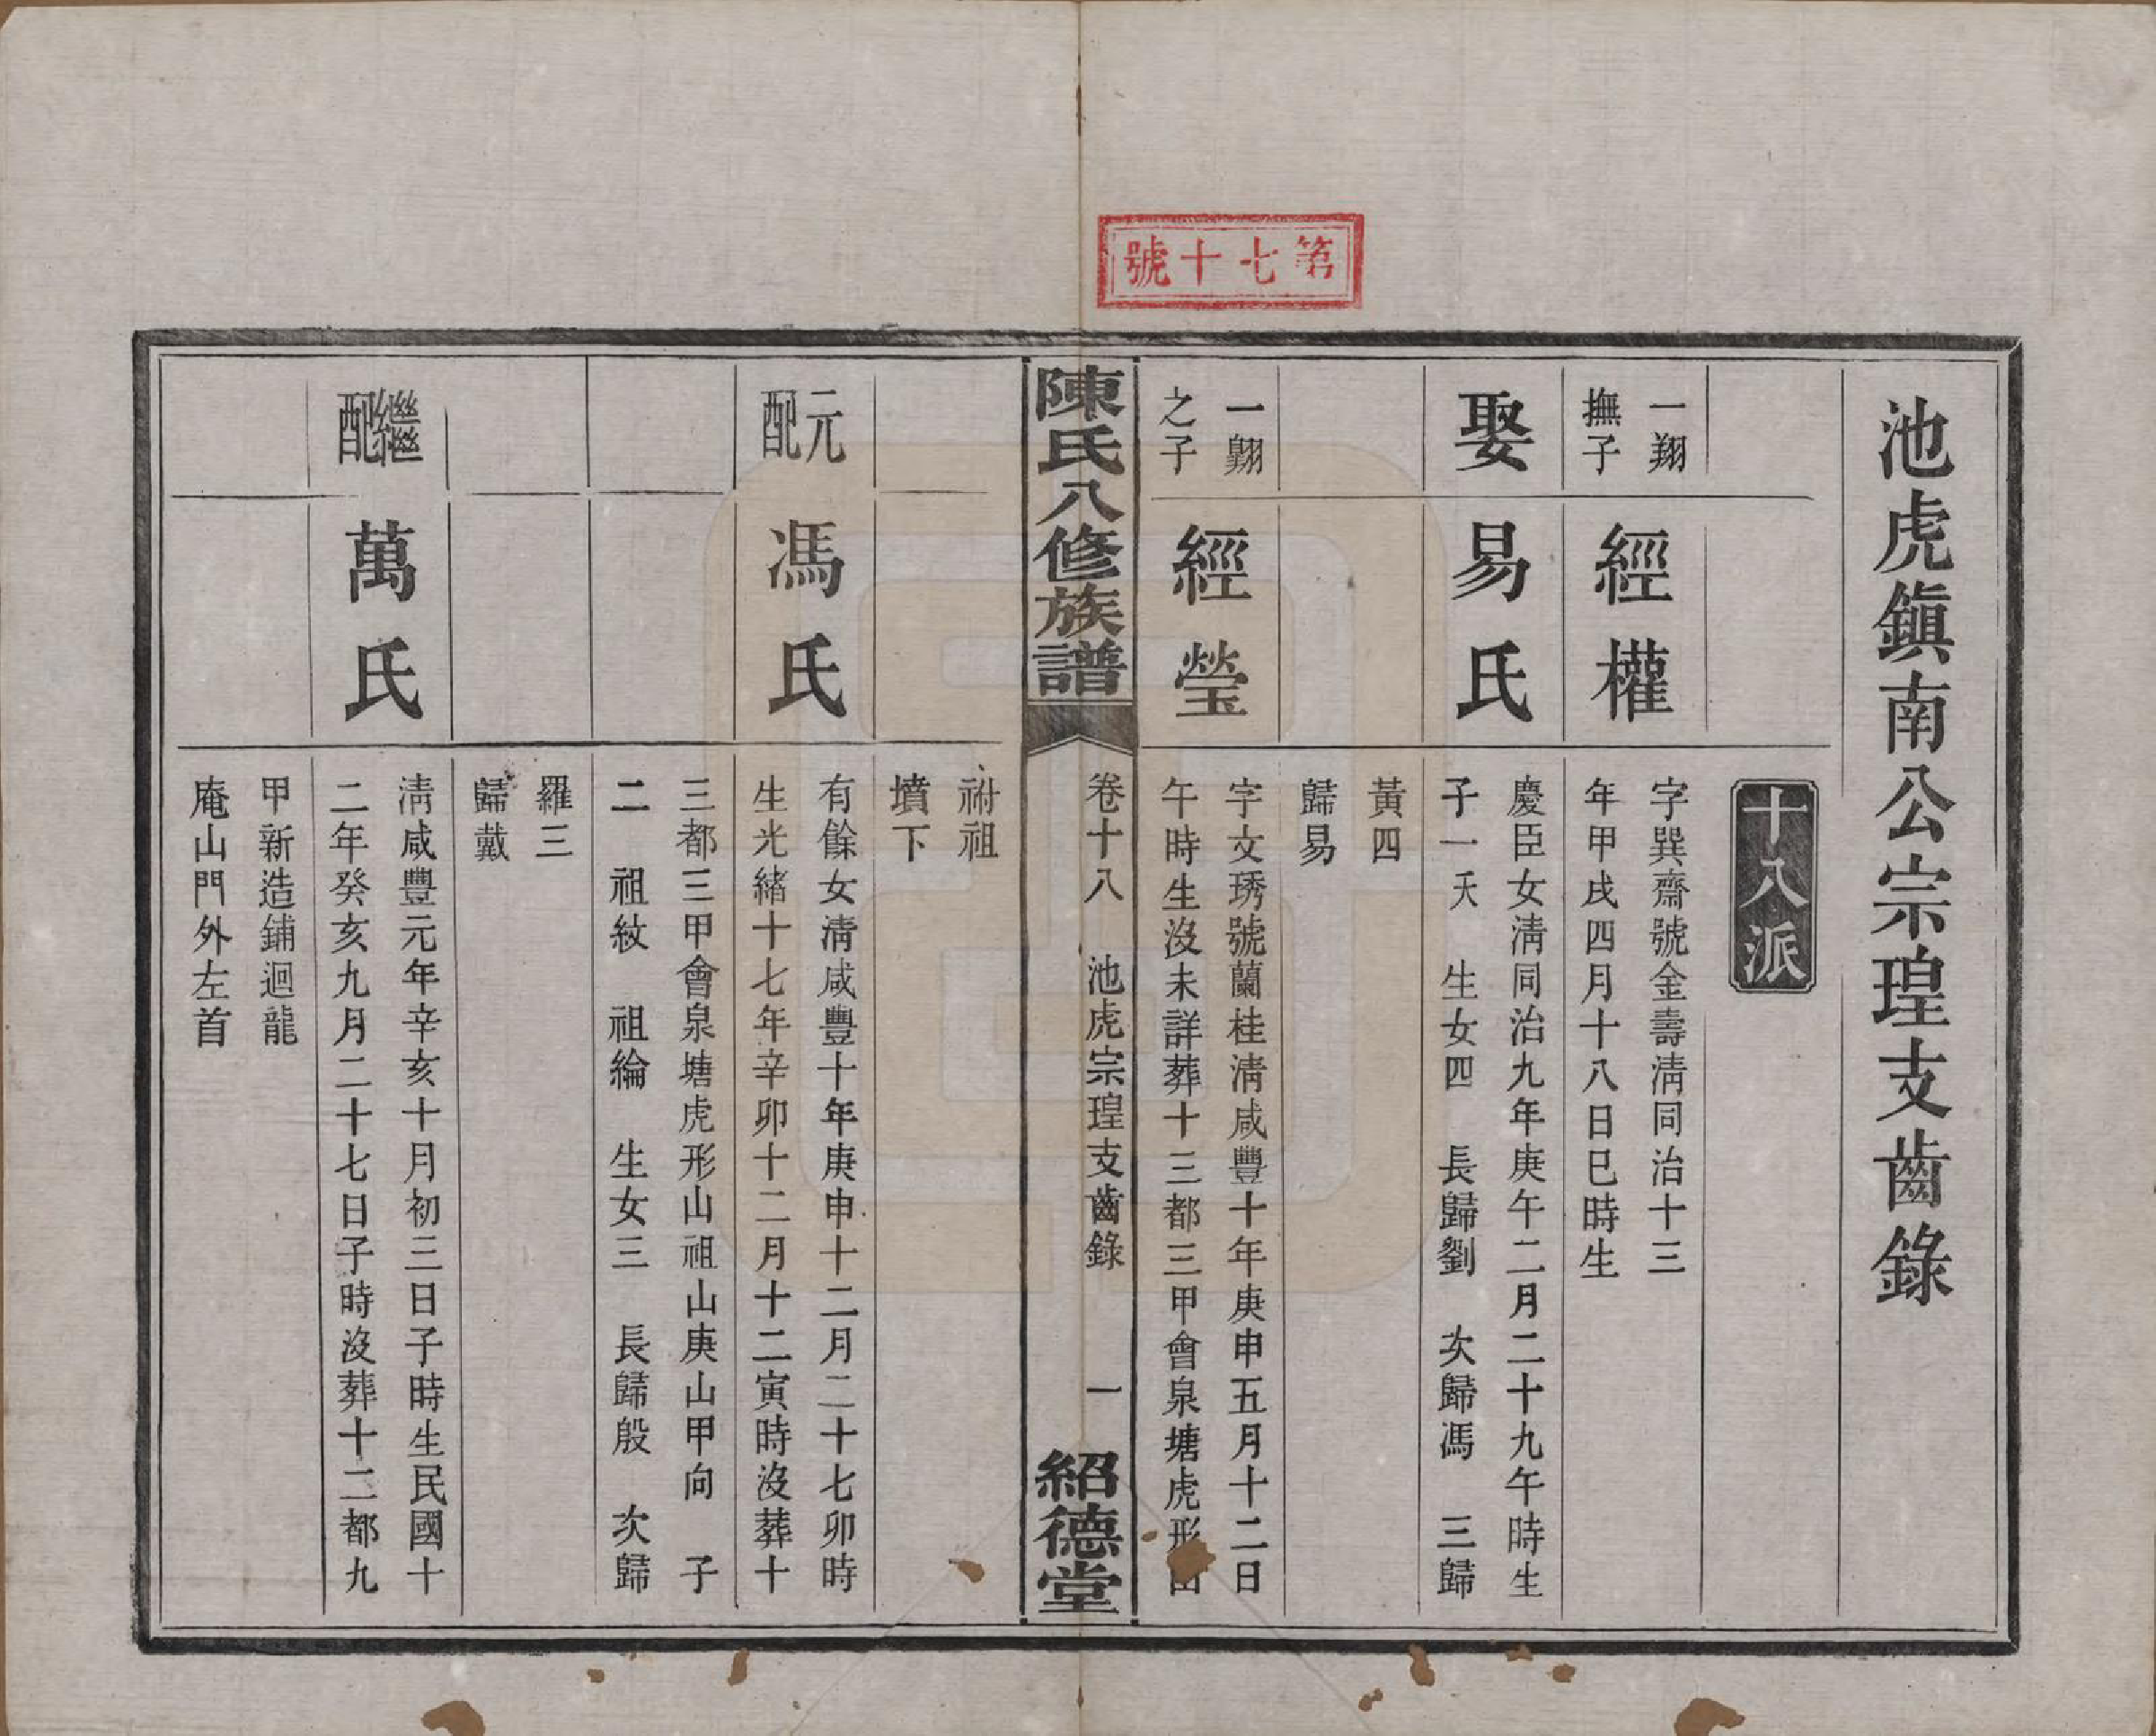 第七十號
池虎鎮南公宗瑝支齒錄
十八派
一翔
撫子
經權
字巽齋號金壽清同治十三
年甲戌四月十八日巳時生
娶
易氏
慶臣女清同治九年庚午二月二十九午時生
子一 天 生女四 長歸劉 次歸馮 三歸
黃四
歸易
一翱
之子
經瑩
字文琇號蘭桂清咸豐十年庚申五月十二日
午時生沒未詳葬十三都三甲會泉塘虎形山
陳氏八修族譜
卷十八 池虎宗瑝支齒錄 一
紹德堂
祔祖
墳下
元
配
馮氏
有餘女清咸豐十年庚申十二月二十七卯時
生光緒十七年辛卯十二月十二寅時沒葬十
三都三甲會泉塘虎形山祖山庚山甲向 子
二 祖紋 祖綸 生女三 長歸殷 次歸
羅三
歸戴
繼
配
萬氏
清咸豐元年辛亥十月初三日子時生民國十
二年癸亥九月二十七日子時沒葬十二都九
甲新造鋪迴龍
庵山門外左首